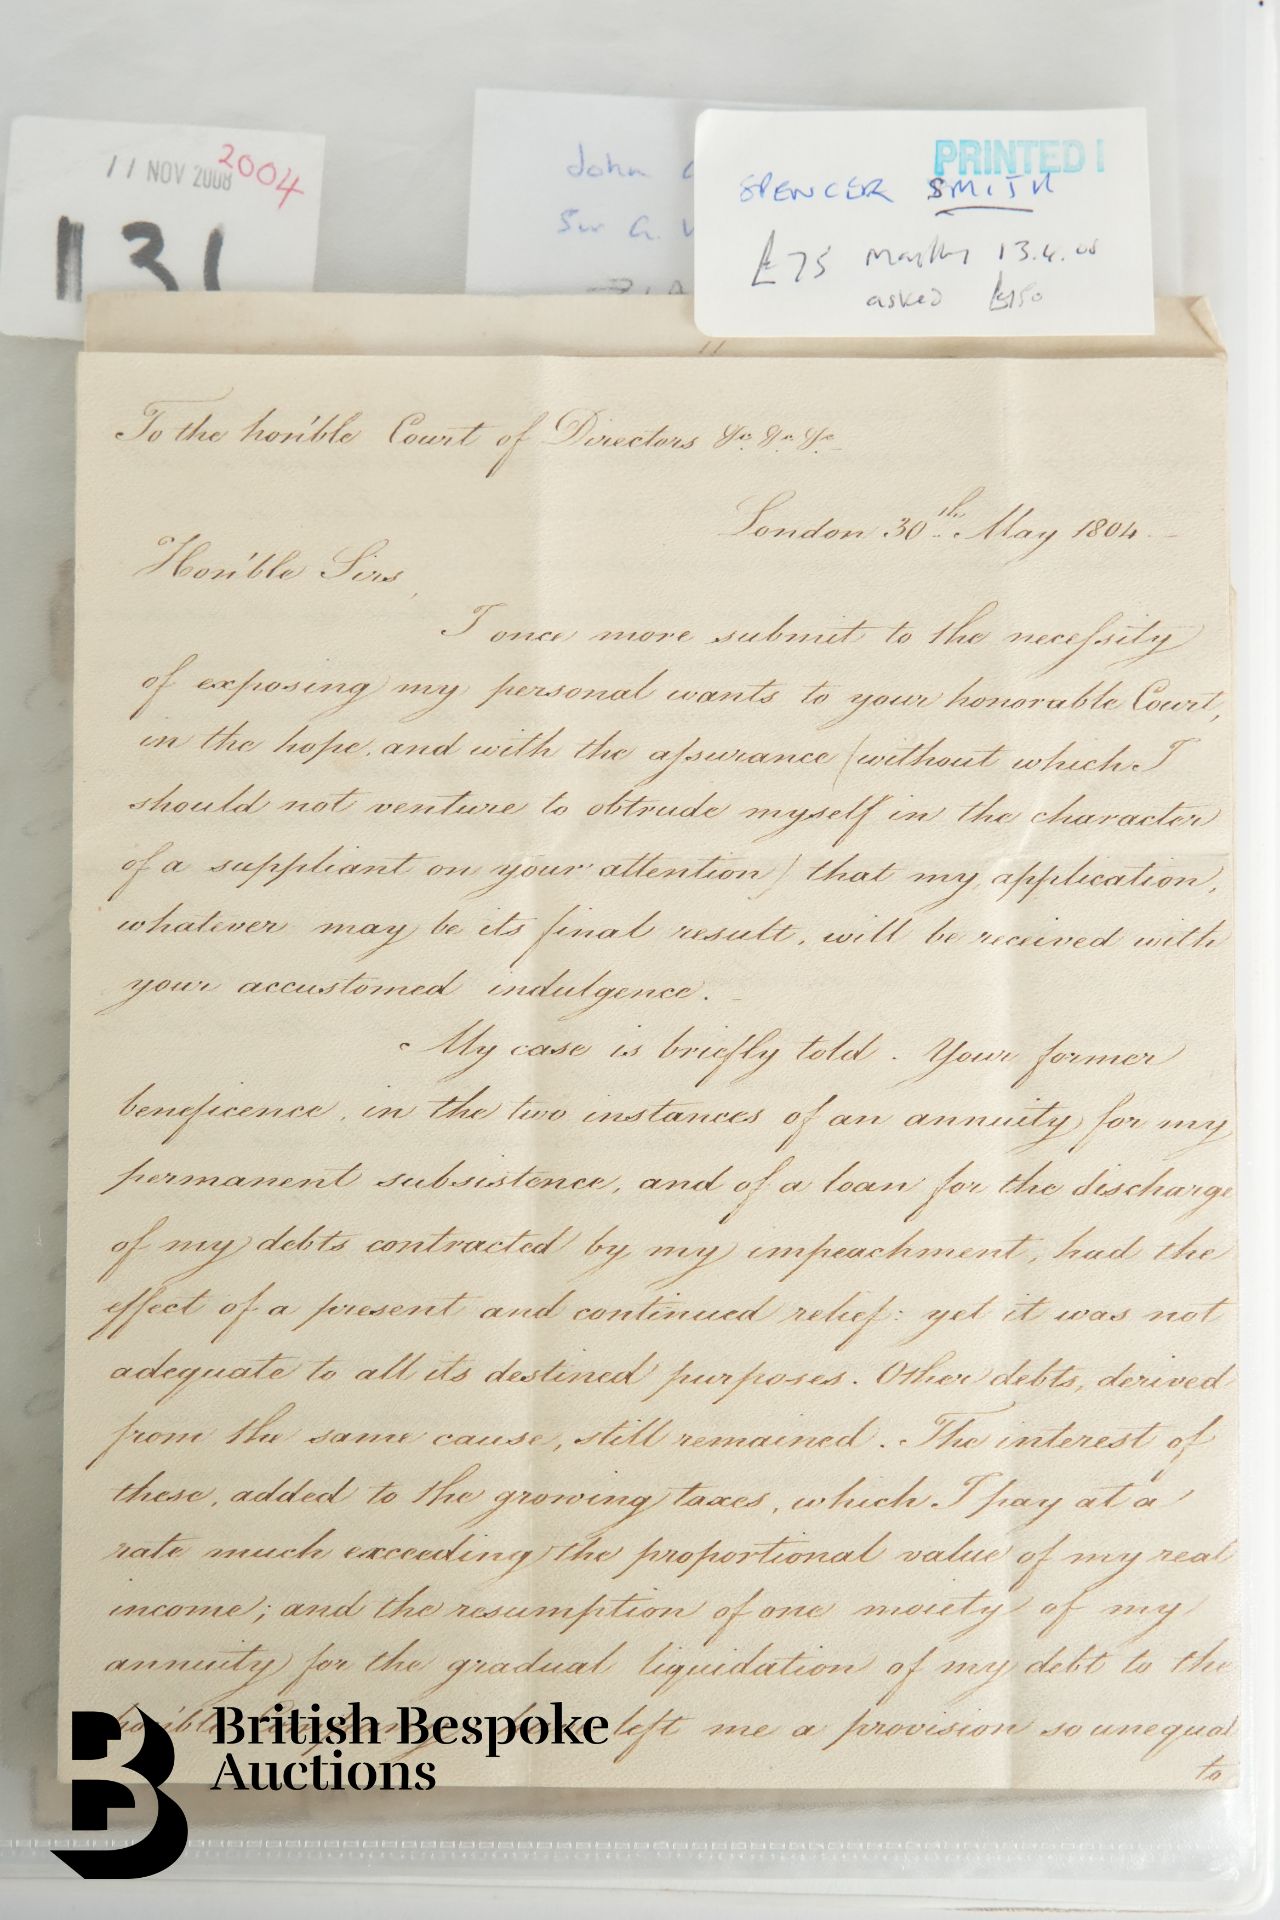 11 NOV 2008
2004
131
John
Sir G.
PRINTED
SPENCER SMITH
£75 13.4.08
asked £150
To the hon'ble Court of Directors &c. &c. &c.
London 30th May 1804.
Hon'ble Sirs,
I once more submit to the necessity
of exposing my personal wants to your honorable Court,
in the hope, and with the assurance (without which I
should not venture to obtrude myself in the character
of a suppliant on your attention) that my application,
whatever may be its final result, will be received with
your accustomed indulgence.
My case is briefly told. Your former
beneficence, in the two instances of an annuity for my
permanent subsistence, and of a loan for the discharge
of my debts contracted by my impeachment, had the
effect of a present and continued relief: yet it was not
adequate to all its destined purposes. Other debts, derived
from the same cause, still remained. The interest of
these, added to the growing taxes, which I pay at a
rate much exceeding the proportional value of my real
income; and the resumption of one moiety of my
annuity for the gradual liquidation of my debt to the
hon'ble Company, have left me a provision so unequal
to
British Bespoke
Auctions